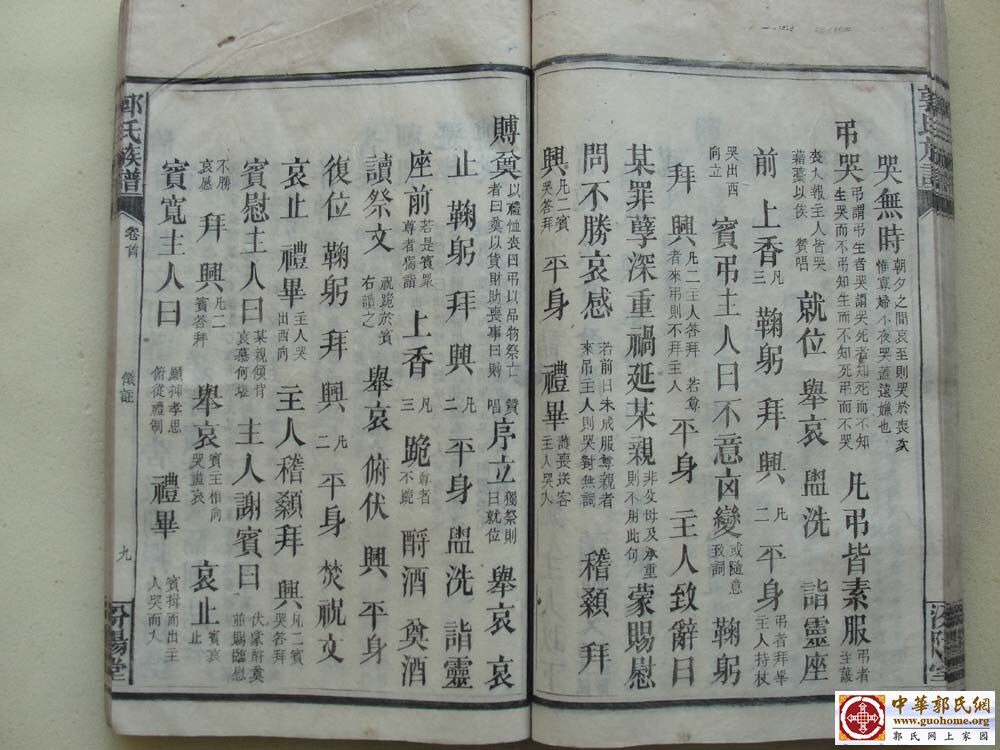 郭氏族譜
汾陽堂
哭無時 朝夕之間哀至則哭於喪次 惟寡婦不夜哭蓋遠嫌也
弔哭 弔謂弔生者哭謂哭死者知死而不知生哭而不弔知生而不知死弔而不哭 凡弔皆素服 弔者至護
喪人報主人皆哭藉藁以俟 賛唱 就位 舉哀 盥洗 詣靈座
前 上香 凡三 鞠躬 拜 興 凡二 平身 弔者拜畢主人持杖
哭出西向立 賓弔主人曰不意凶變 或隨意致詞 鞠躬
拜 興 凡二主人答拜 若尊者來弔則不拜主人 平身 主人致辭曰
某罪孽深重禍延某親 非父母及承重則不用此句 蒙賜慰
問不勝哀感 若前日未成服尊親者來弔主人則哭對無詞 稽顙 拜
興 凡二賓哭答拜 平身 禮畢 護喪送客主人哭入
賻奠 以禮恤喪曰弔以品物祭亡者曰奠以貨財助喪事曰賻 賛唱 序立 獨祭則曰就位 舉哀 哀
止 鞠躬 拜 興 凡二 平身 盥洗 詣靈
座前 若是賓衆尊者獨詣 上香 凡三 跪 尊者不跪 酹酒 奠酒
讀祭文 祝跪於賓右讀之 舉哀 俯伏 興 平身
復位 鞠躬 拜 興 凡二 平身 焚祝文
哀止 禮畢 主人哭出西向 主人稽顙拜 興 凡二賓哭答拜
賓慰主人曰 某親傾背哀慕何堪 主人謝賓曰 伏蒙辭奠並賜臨慰
不勝哀感 拜 興 凡二賓答拜 舉哀 賓主相向哭盡哀 哀止 賓哀止
賓寬主人曰 願抑孝思俯從禮制 禮畢 賓揖而出主人哭而入
郭氏族譜
卷首
儀註
九
汾陽堂
中華郭氏網
www.guohome.org
郭氏網上家園